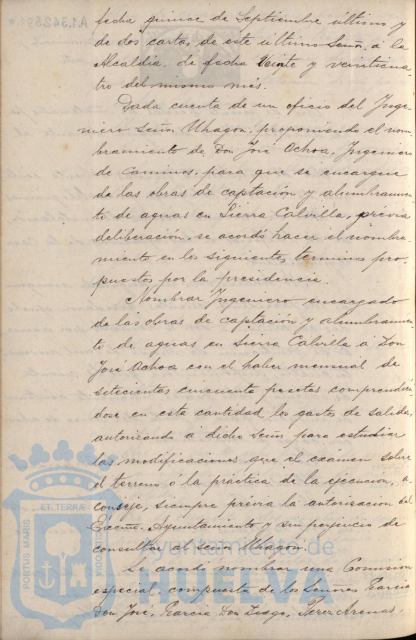 fecha quince de Septiembre último y
de dos cartas de este último Señor, a la
Alcaldía, de fecha veinte y veinticua
tro del mismo mes.
Dada cuenta de un oficio del Inge
niero Señor Uhagon, proponiendo el nom
bramiento de Don José Ochoa, Ingeniero
de Caminos, para que se encargue
de las obras de captación y alumbramien
to de aguas en Sierra Calvilla, previa
deliberación, se acordó hacer el nombra
miento en los siguientes términos pro-
puestos por la presidencia.
Nombrar Ingeniero encargado
de las obras de captación y alumbramien
to de aguas en Sierra Calvilla a Don
José Ochoa con el haber mensual de
setecientas cincuenta pesetas comprendién
dose en esta cantidad los gastos de salida,
autorizando a dicho Señor para estudiar
las modificaciones que el exámen sobre
el terreno o la práctica de la ejecucion, a-
conseje, siempre previa la autorizacion del
Excmo. Ayuntamiento y sin perjuicio de
consultar al Señor Uhagon.
Se acordó nombrar una Comision
especial, compuesta de los Señores García
Don José, García Don Diego, Perez Arenas,
PORTUS MARIS
ET TERRÆ
Ayuntamiento de
HUELVA